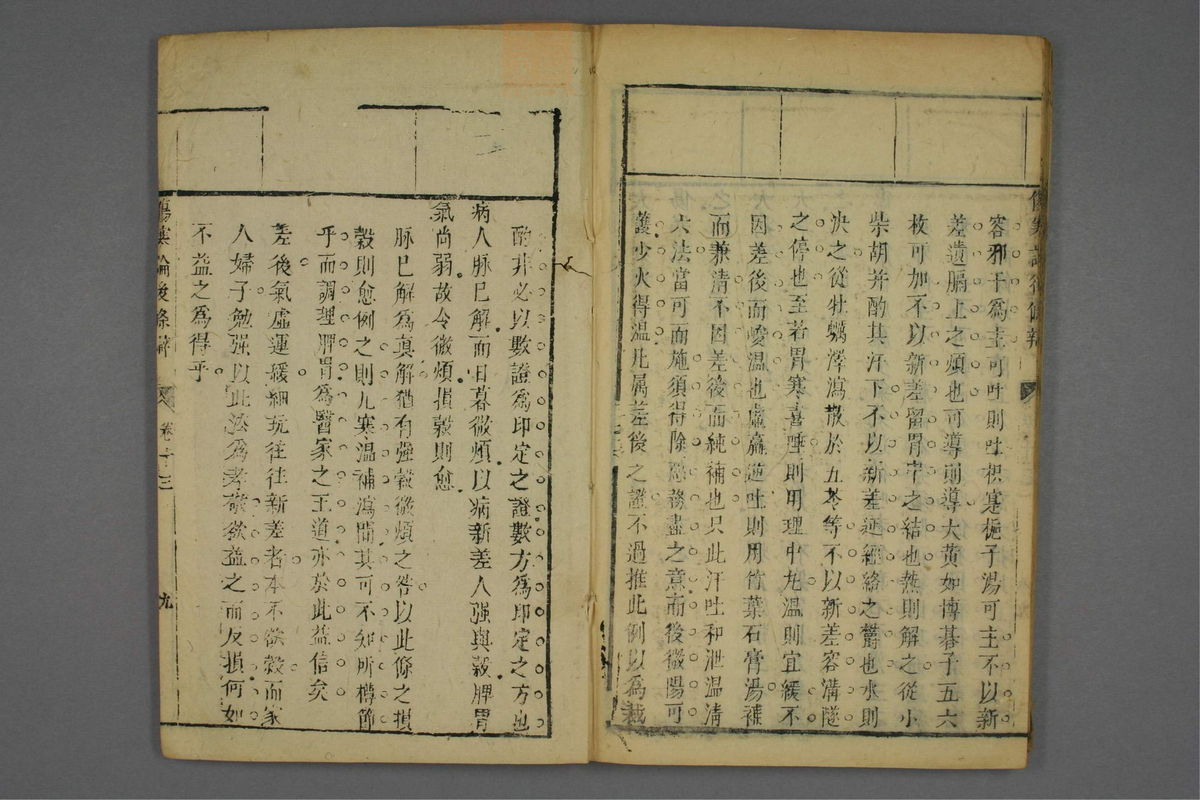 容邪干為主可吐則吐枳寔梔子湯可主不以新
差遺膈上之煩也可導則導大黃如博碁子五六
枚可加不以新差留胃中之結也然則解之從小
柴胡并酌其汗下不以新差延經絡之欝也水則
決之從牡蠣澤瀉散於五苓等不以新差容溝隧
之停也至若胃寒喜唾則用理中丸溫則宜緩不
因差後而峻溫也虛羸逆吐則用竹葉石膏湯補
而兼清不因差後而純補也只此汗吐和泄溫清
六法當可而施須得除惡務盡之意而後微陽可
護少火得溫凡属差後之證不過推此例以為裁
酌非必以數證為印定之證數方為印定之方也
病人脉已解而日暮微煩以病新差人强與穀脾胃
氣尚弱故令微煩損穀則愈
脉已解為真解猶有强穀微煩之咎以此條之損
穀則愈例之則凡寒溫補瀉間其可不知所樽節
乎而調理脾胃為醫家之王道亦於此益信矣
差後氣虛運緩細玩往往新差者本不欲穀而家
人婦子勉强以此法為孝敬欲益之而反損何如
不益之為得乎
傷寒論後條辯
卷十三
九